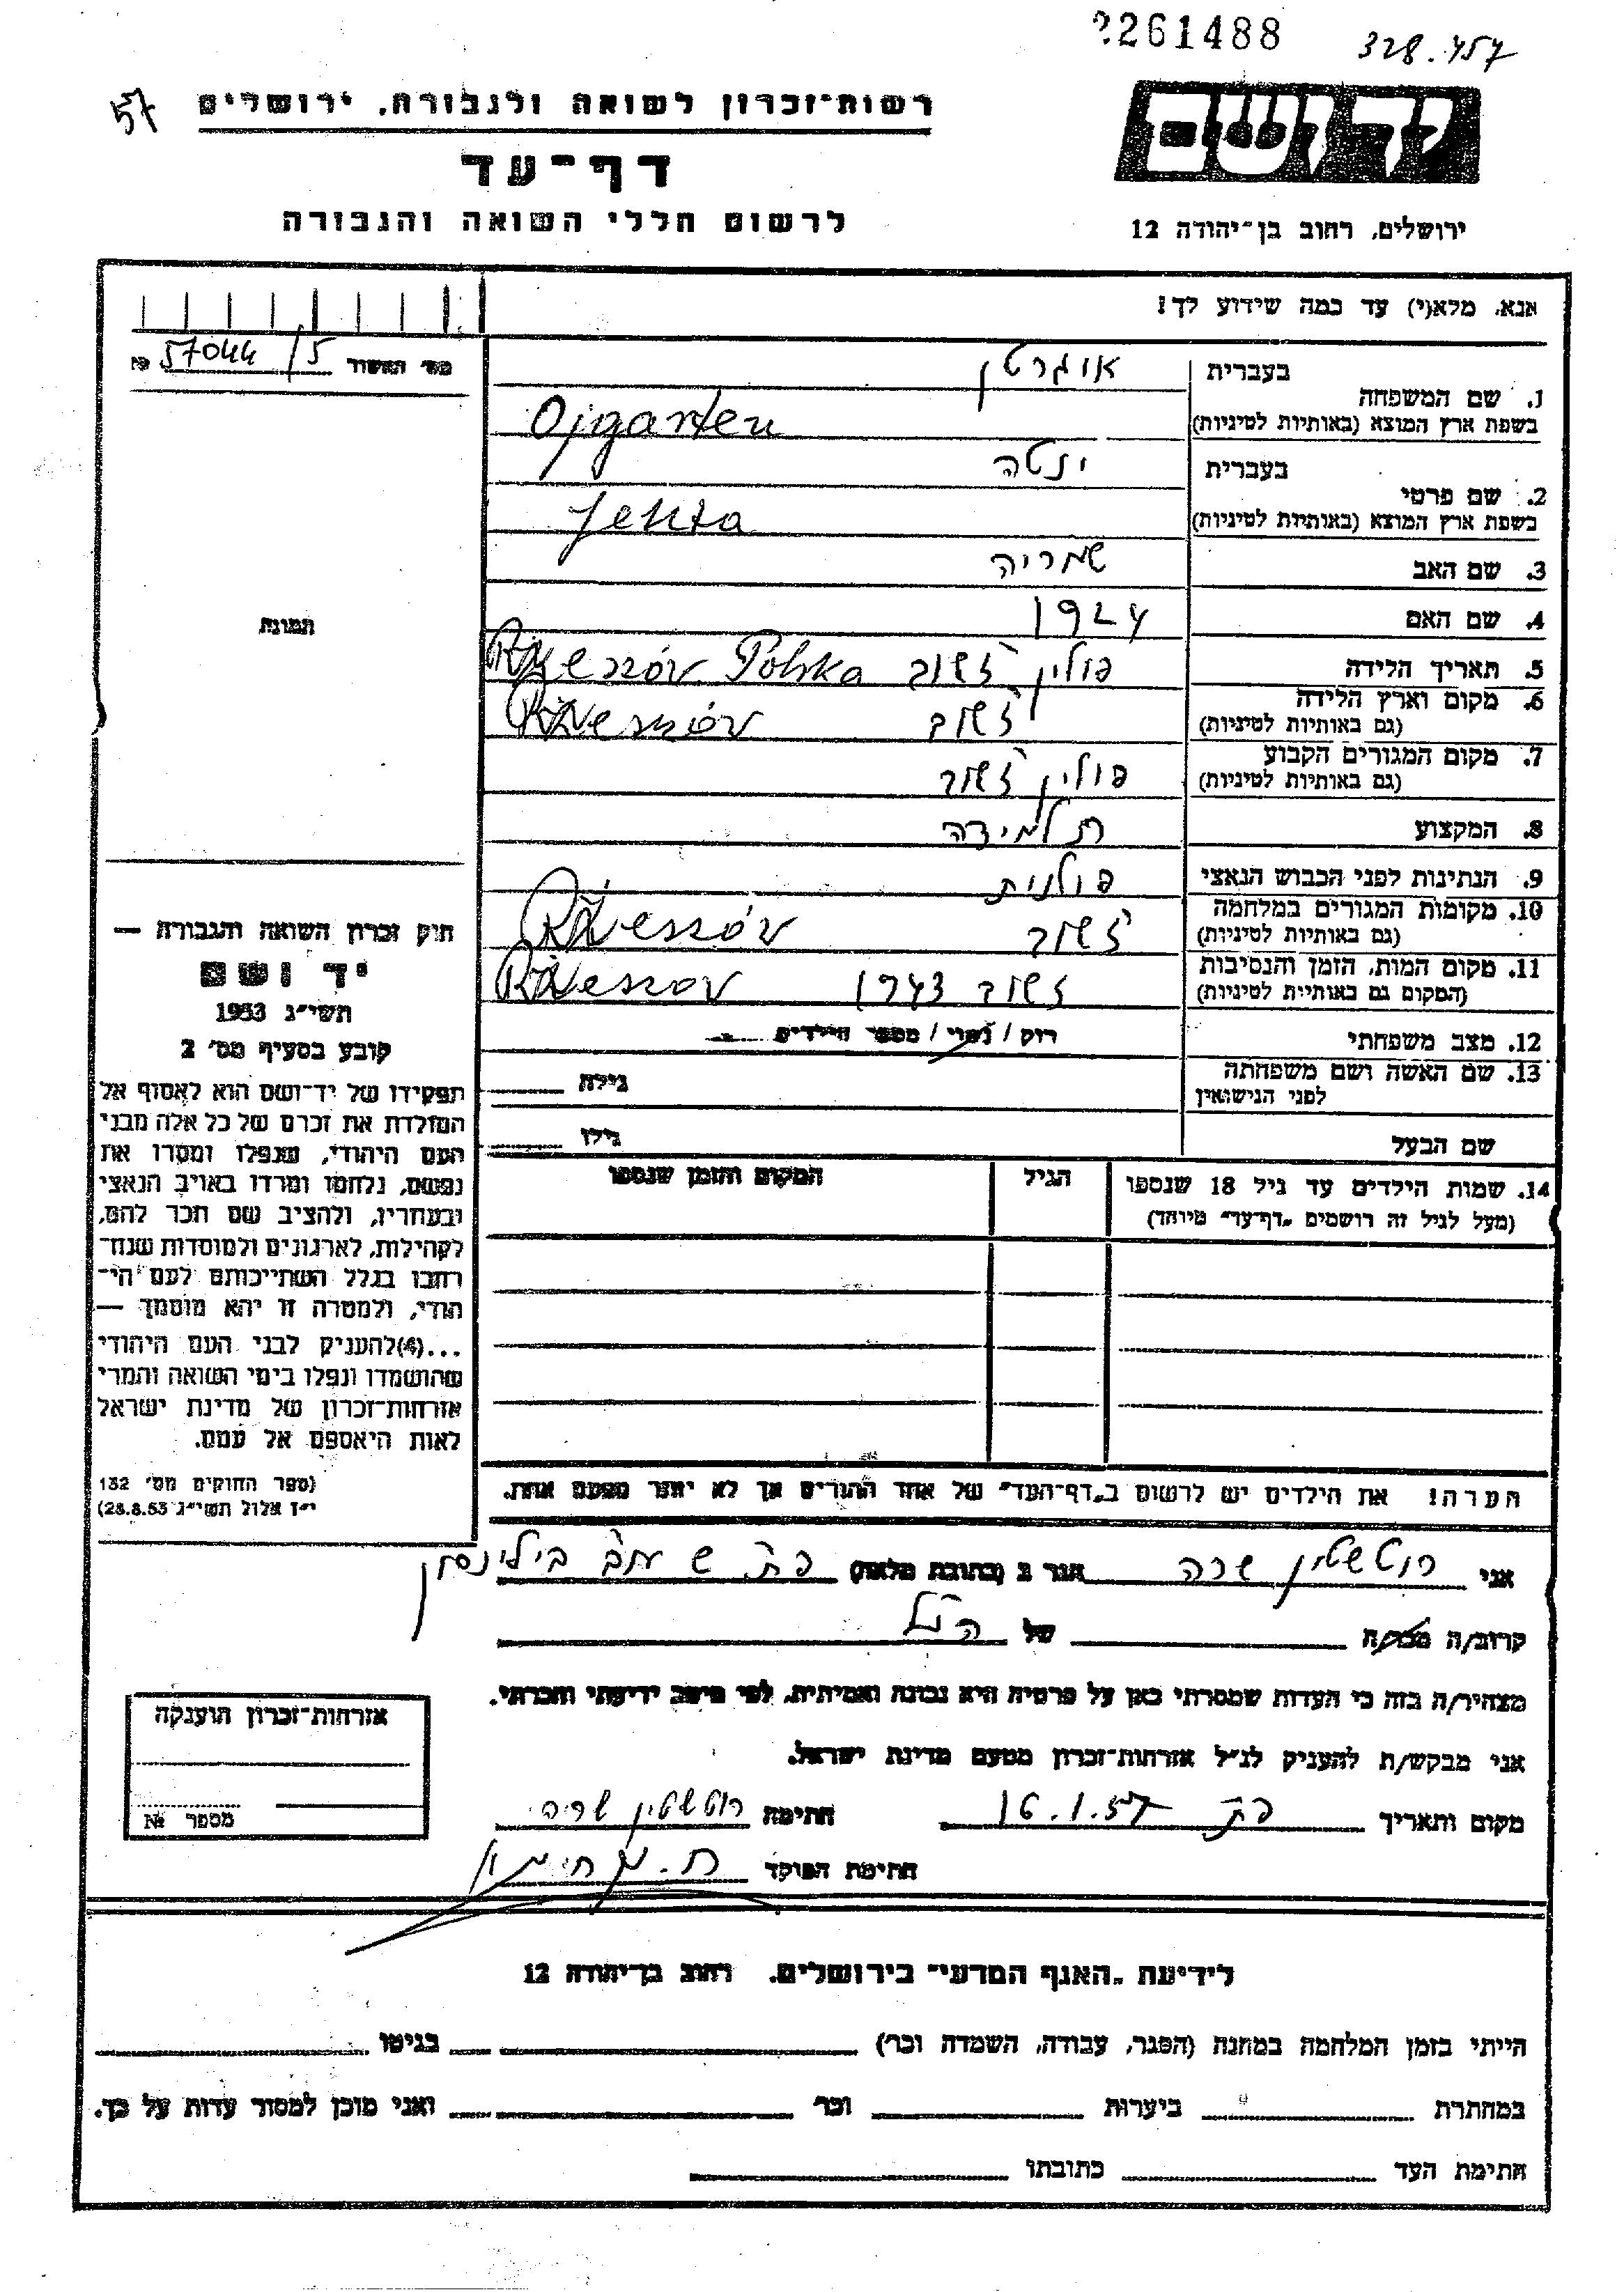 261488 328.457
57
רשות־זכרון לשואה ולגבורה, ירושלים
יד ושם
דף־עד
לרשום חללי השואה והגבורה
ירושלים, רחוב בן־יהודה 12
אנא, מלא(י) עד כמה שידוע לך!
מס׳ האשור 57044/5
1. שם המשפחה בעברית אוגרטן
בשפת ארץ המוצא (באותיות לטיניות) Ojgarten
2. שם פרטי בעברית ינטה
בשפת ארץ המוצא (באותיות לטיניות) Jenta
3. שם האב שמריה
4. שם האם 1924
5. תאריך הלידה פולין זשוב Rzeszów Polska
6. מקום וארץ הלידה
(גם באותיות לטיניות) זשוב Rzeszów
7. מקום המגורים הקבוע
(גם באותיות לטיניות) פולין זשוב
8. המקצוע תלמידה
9. הנתינות לפני הכבוש הנאצי פולנית
10. מקומות המגורים במלחמה
(גם באותיות לטיניות) זשוב Rzeszów
11. מקום המות, הזמן והנסיבות
(המקום גם באותיות לטיניות) זשוב 1943 Rzeszov
12. מצב משפחתי רוק / נשוי / מספר הילדים
13. שם האשה ושם משפחתה
לפני הנישואין גילה
שם הבעל גילו
14. שמות הילדים עד גיל 18 שנספו הגיל המקום והזמן שנספו
(מעל לגיל זה רושמים „דף־עד” מיוחד)
הערה! את הילדים יש לרשום ב„דף־העד” של אחד ההורים אך לא יותר מפעם אחת.
תמונה
חוק זכרון השואה והגבורה —
יד ושם
תשי״ג 1953
קובע בסעיף מס׳ 2
תפקידו של יד־ושם הוא לאסוף אל
המולדת את זכרם של כל אלה מבני
העם היהודי, שנפלו ומסרו את
נפשם, נלחמו ומרדו באויב הנאצי
ובעוזריו, ולהציב שם וזכר להם,
לקהילות, לארגונים ולמוסדות שנח־
רבו בגלל השתייכותם לעם הי־
הודי, ולמטרה זו יהא מוסמך —
...(4)להעניק לבני העם היהודי
שהושמדו ונפלו בימי השואה והמרי
אזרחות־זכרון של מדינת ישראל
לאות היאספם אל עמם.
(ספר החוקים מס׳ 132
י״ז אלול תשי״ג 28.8.53)
אני רוטשטין שרה הגר ב (כתובת מלאה) פ״ת ש עמב בילינסון
קרוב/ה מכר/ה של הנ״ל
מצהיר/ה בזה כי העדות שמסרתי כאן על פרטיה היא נכונה ואמיתית, לפי מיטב ידיעתי והכרתי.
אני מבקש/ת להעניק לנ״ל אזרחות־זכרון מטעם מדינת ישראל.
מקום ותאריך פת 16.1.57 חתימה רוטשטין שרה
חתימת הפוקד
אזרחות־זכרון הוענקה
מספר №
לידיעת „האגף המדעי” בירושלים, רחוב בן־יהודה 12
הייתי בזמן המלחמה במחנה (הסגר, עבודה, השמדה וכו׳) בגיטו
במחתרת ביערות וכו׳ ואני מוכן למסור עדות על כך.
חתימת העד כתובתו